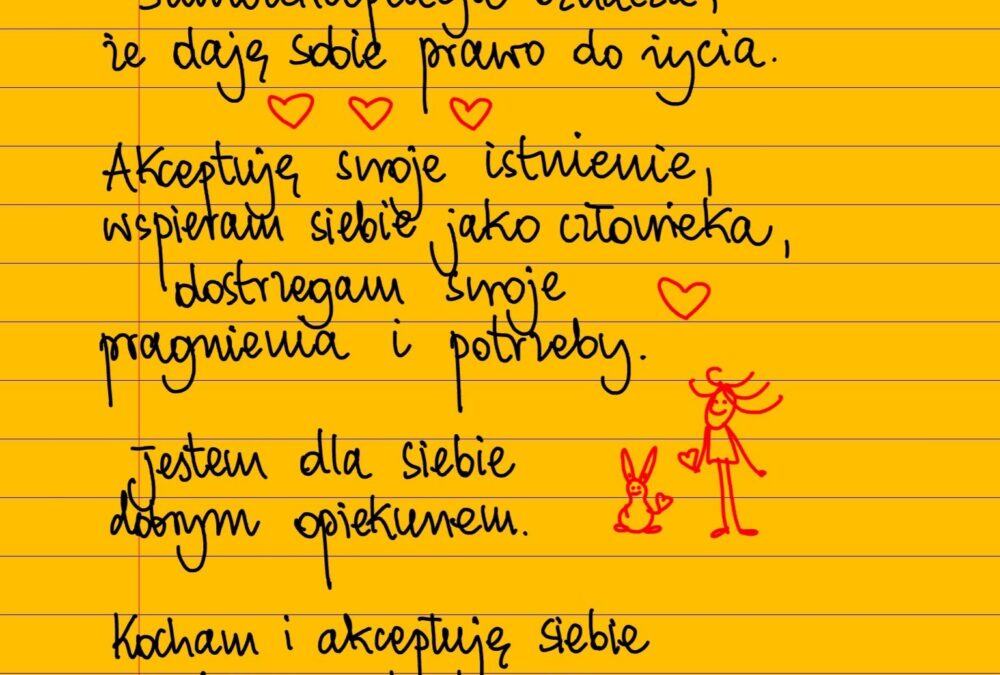 Samoakceptacja oznacza,
że daję sobie prawo do życia.
Akceptuję swoje istnienie,
wspieram siebie jako człowieka,
dostrzegam swoje
pragnienia i potrzeby.
Jestem dla siebie
dobrym opiekunem.
Kocham i akceptuję siebie